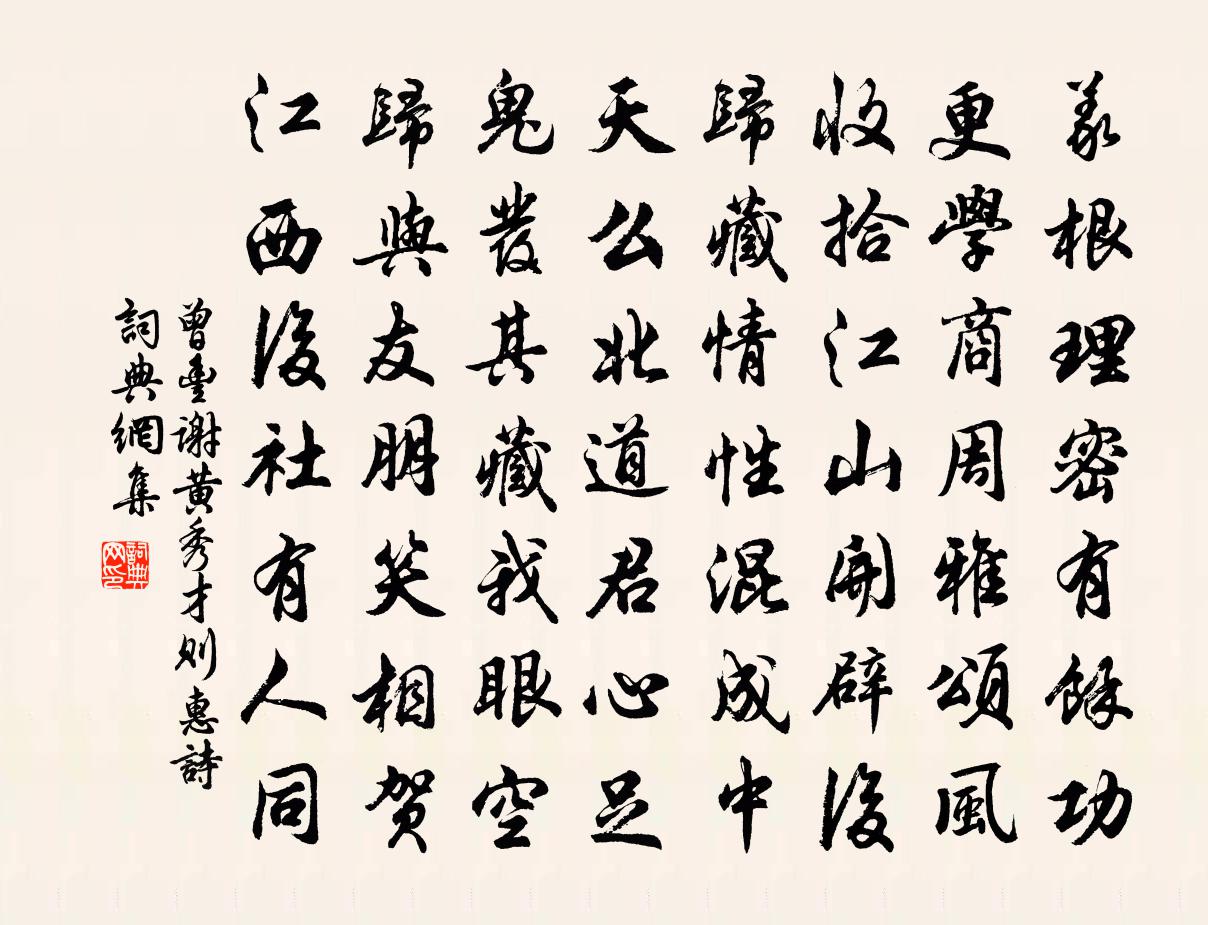 義根理密有餘功
更學商周雅頌風
收拾江山開辟後
歸藏情性混成中
天么北道君心足
鬼發其藏我眼空
歸與友朋笑相賀
江西後社有人同
曾豐謝黃秀才則惠詩
詞典網集
詞典網印